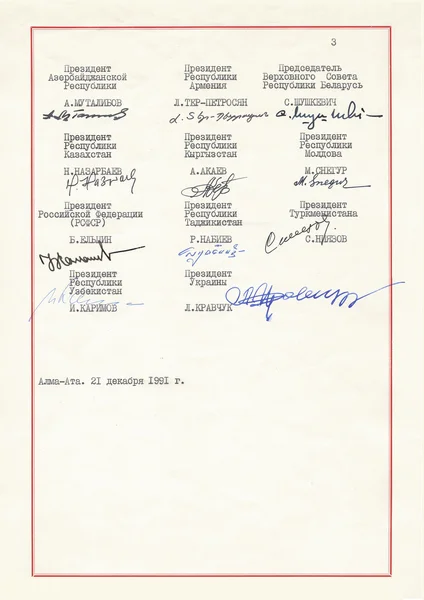 3
Президент Азербайджанской Республики
А.МУТАЛИБОВ
Президент Республики Армения
Л.ТЕР-ПЕТРОСЯН
Председатель Верховного Совета Республики Беларусь
С.ШУШКЕВИЧ
Президент Республики Казахстан
Н.НАЗАРБАЕВ
Президент Республики Кыргызстан
А.АКАЕВ
Президент Республики Молдова
М.СНЕГУР
Президент Российской Федерации (РСФСР)
Б.ЕЛЬЦИН
Президент Республики Таджикистан
Р.НАБИЕВ
Президент Туркменистана
С.НИЯЗОВ
Президент Республики Узбекистан
И.КАРИМОВ
Президент Украины
Л.КРАВЧУК
Алма-Ата. 21 декабря 1991 г.